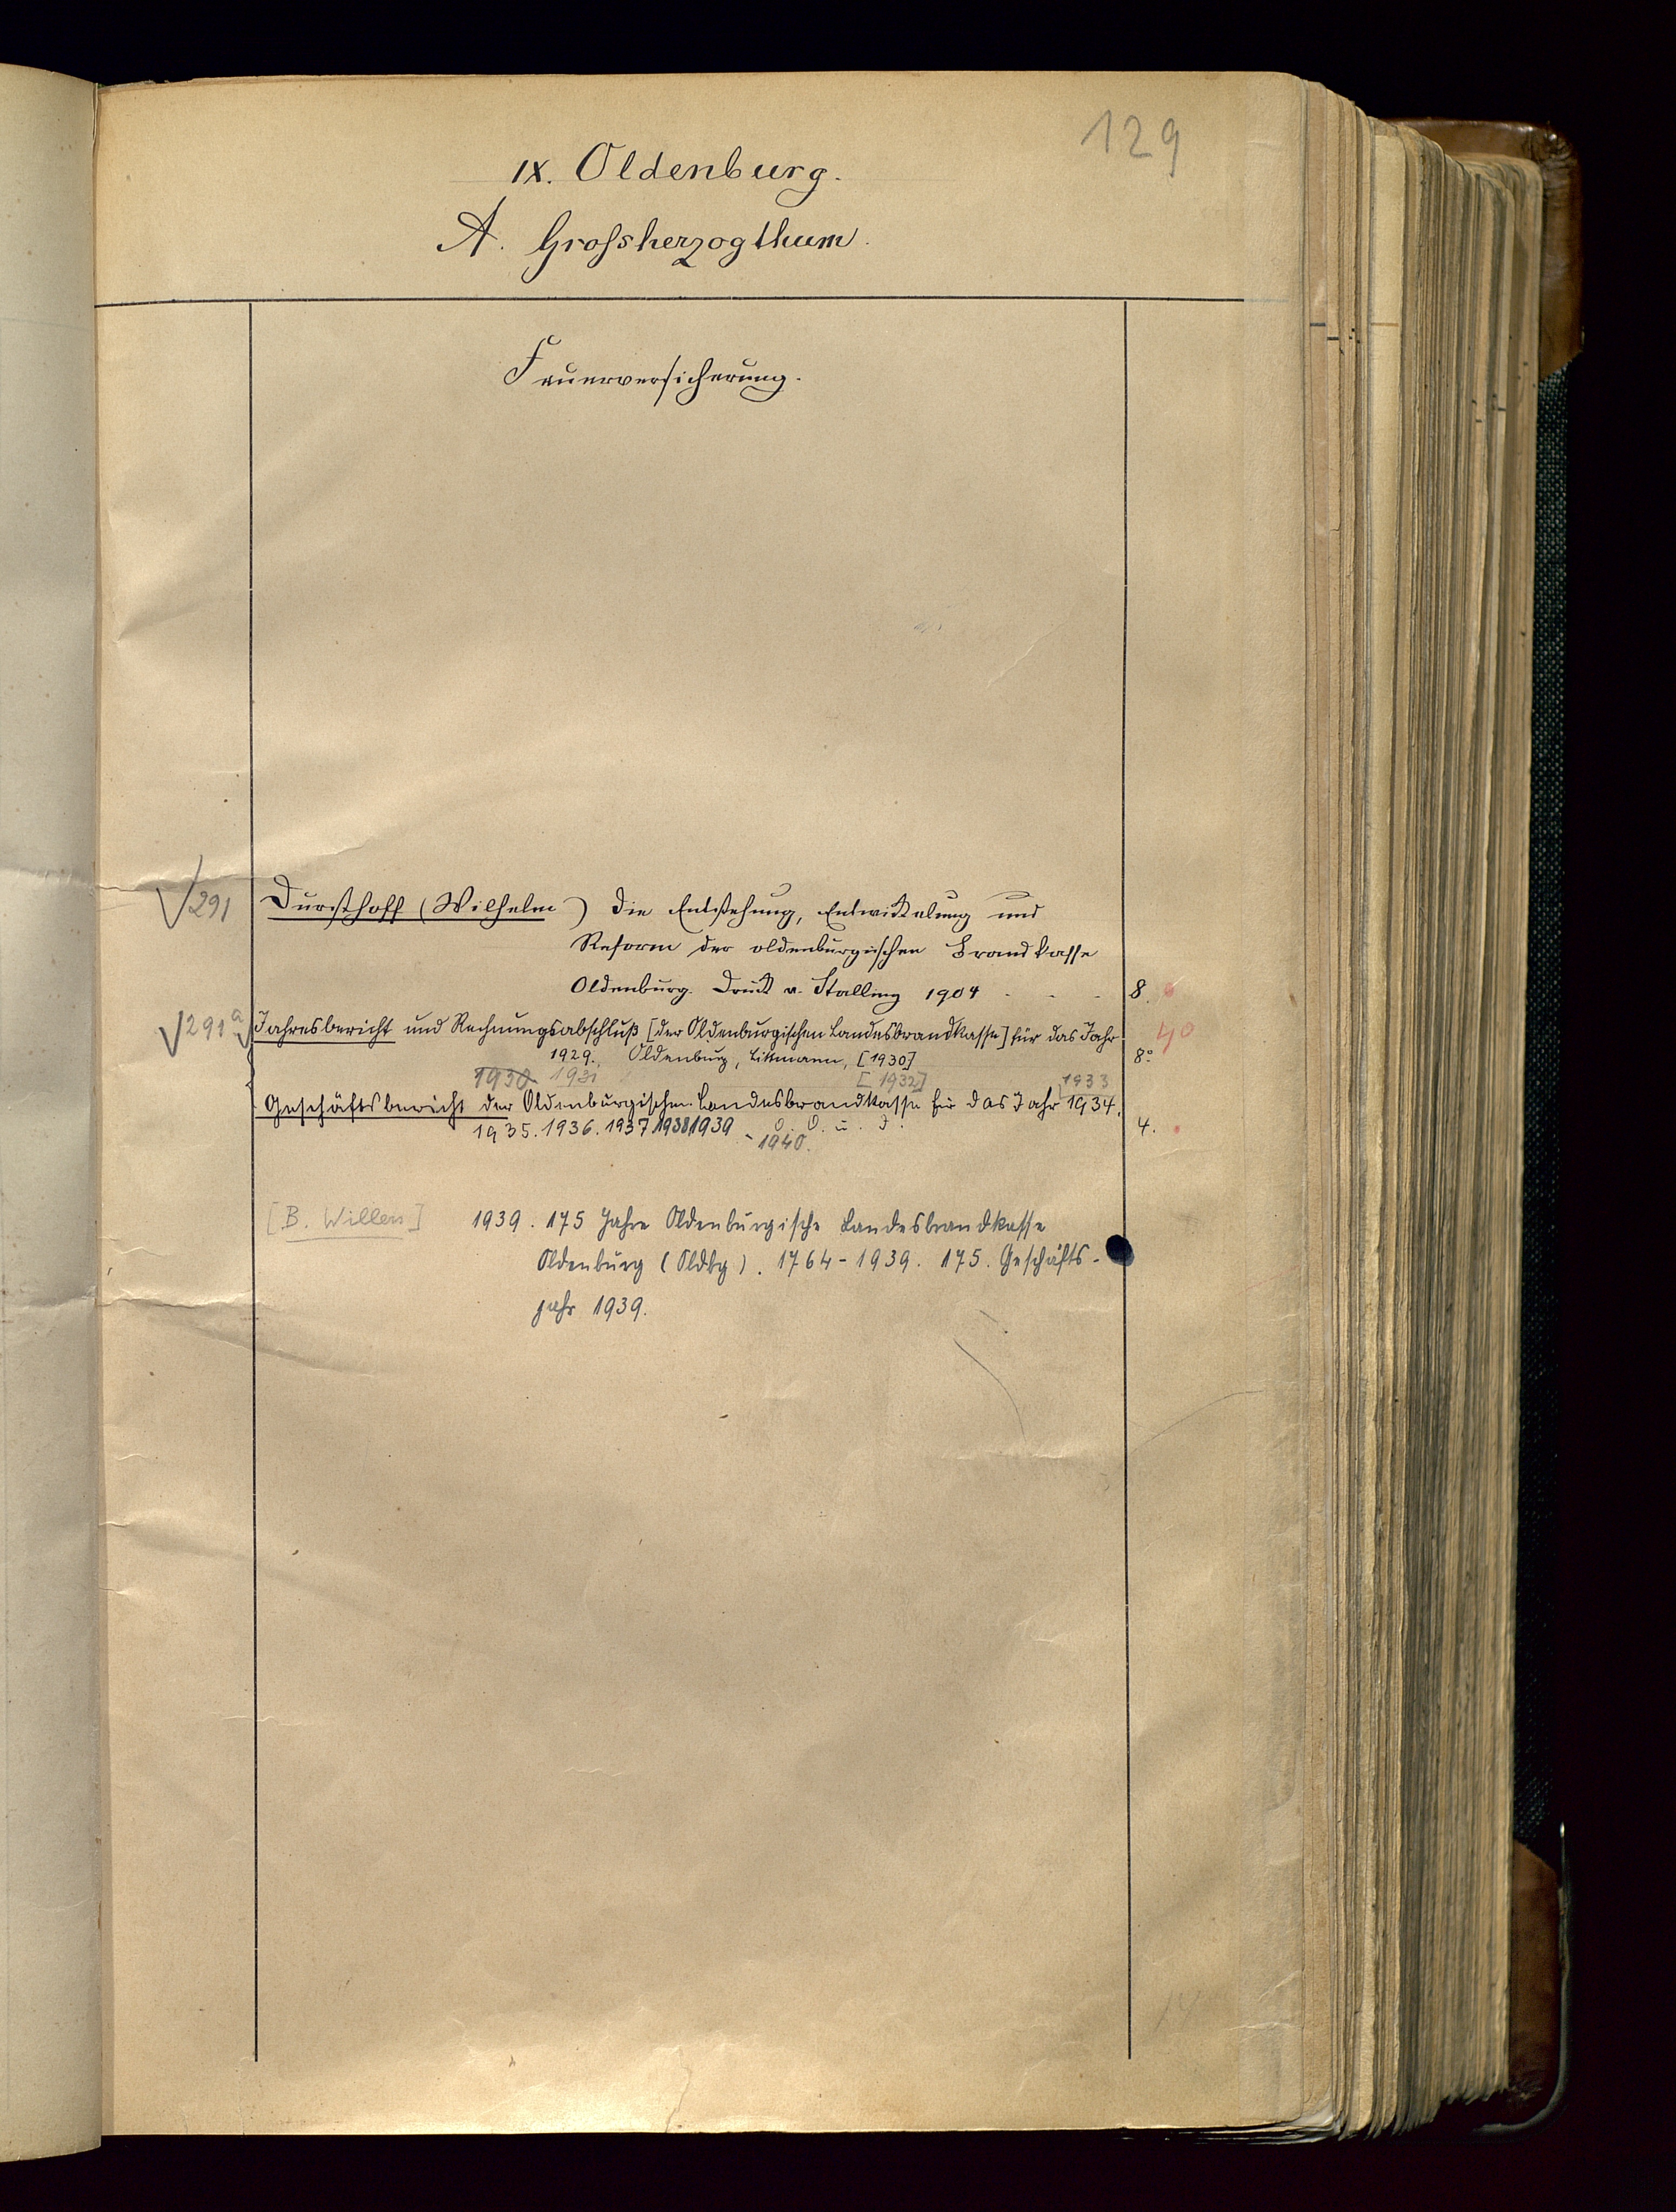 129
IX. Oldenburg.
A. Grossherzogthum.
Feuerversicherung.
291 Dursthoff (Wilhelm) Die Entstehung, Entwickelung und
Reform der oldenburgischen Brandkasse
Oldenburg. Druck v. Stalling 1904 - - - 8.
291a Jahresbericht und Rechnungsabschluß [der Oldenburgischen Landesbrandkasse] für das Jahr 40
1929. Oldenburg, Littmann, [1930] 8°
1930 1931 [1932] 1933
Geschäftsbericht der Oldenburgischen Landesbrandkasse für das Jahr 1934.
1935. 1936. 1937 1938 1939 - 1940. O. O. u. J. 4.
[B. Willers] 1939. 175 Jahre Oldenburgische Landesbrandkasse
Oldenburg (Oldbg). 1764-1939. 175. Geschäfts-
jahr 1939.